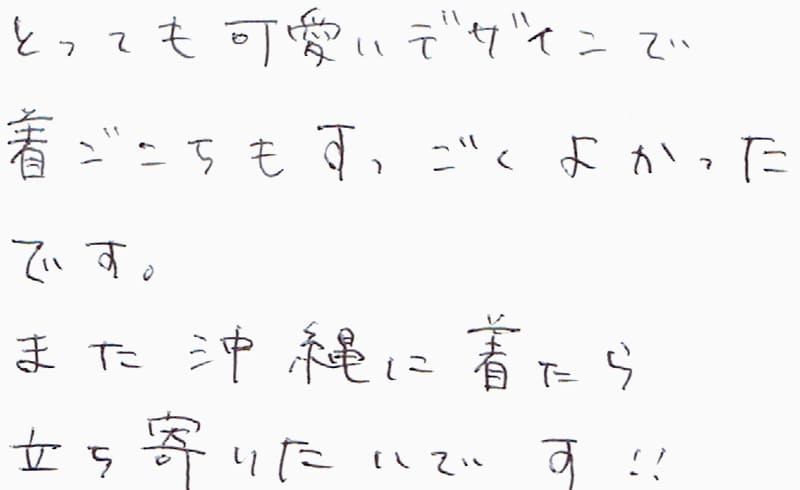 とっても可愛いデザインで
着ごこちもすっごくよかった
です。
また沖縄に着たら
立ち寄りたいです!!